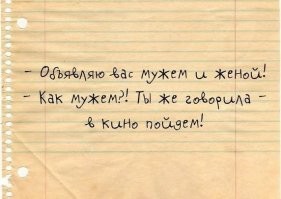 - Объявляю вас мужем и женой!
- Как мужем?! Ты же говорила -
в кино пойдем!